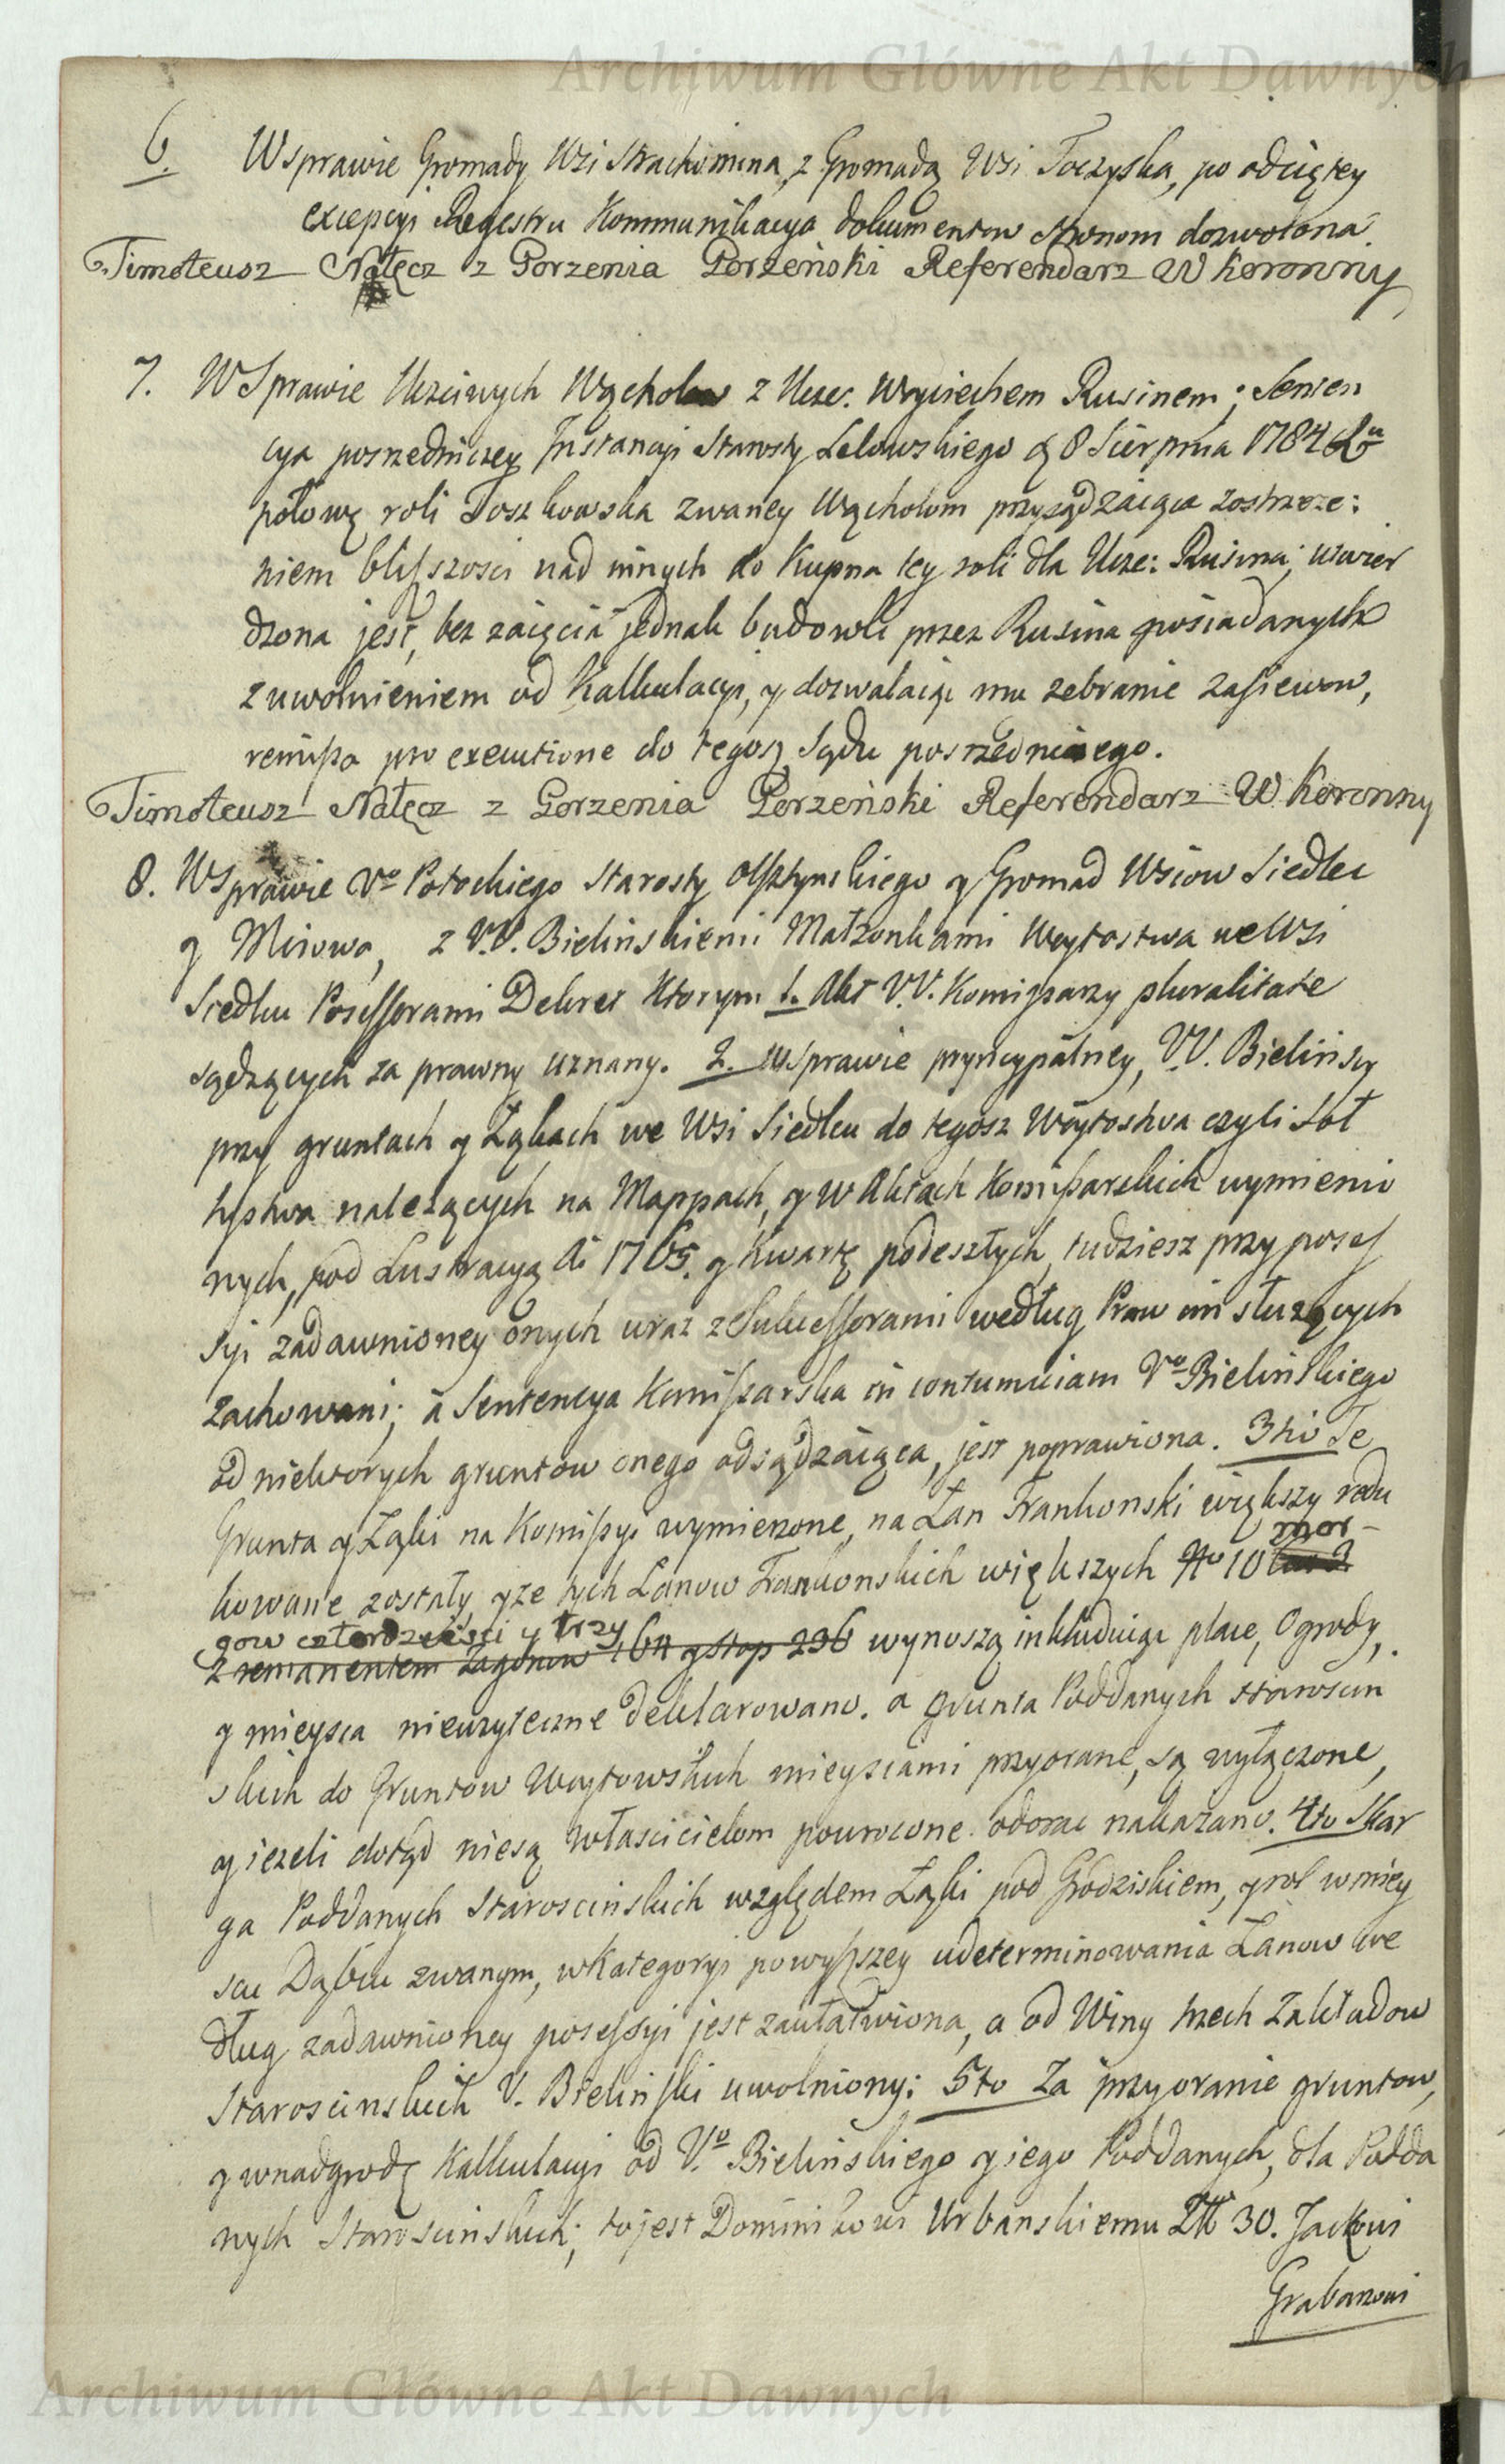 Archiwum Główne Akt Dawnych
6. W sprawie Gromady Wsi Strachomina, z Gromadą Wsi Toczyska, po odciętey
excepcyi Regestru Kommunikacya dokumentow stronom dozwolona.
Timoteusz Nałęcz z Gorzenia Gorzeński Referendarz W Koronny
7. W Sprawie Uczciwych Wącholow z Uczc. Woyciechem Rusinem; Senten
cya posredniczey Instancyi Starosty Lelowskiego d 8 Sierpnia 1784
połowę roli Toszkowska zwaney Wącholom przysądzaiąca zostrzeże:
niem bliższosci nad innych do Kupna tey roli dla Ucze: Rusina; utwier
dzona jest, bez zaięcia jednak budowli przez Rusina posiadanych
z uwolnieniem od Kalkulacyi, y dozwalaiąc mu zebranie zasiewow,
remissa pro executione do tegosz Sądu posrzedniego.
Timoteusz Nałęcz z Gorzenia Gorzeński Referendarz W Koronny
8. W Sprawie Vo Potockiego Starosty Olsztynskiego y Gromad Wsiow Siedlec
y Mirowa, z V.V. Bielinskiemi Małzonkami Woytostwa we Wsi
Siedlcu Possessorami Dekret Ktorym 1. Akt V.V. Komissarzy pluralitate
sądzących za prawny uznany. 2. w sprawie pryncypalney, V.V. Bielinscy
przy gruntach y Łąkach we Wsi Siedlcu do tegosz Woytostwa czyli Soł
tystwa nalezących na Mappach, y w Aktach Komissarskich wymienio
nych, pod Lustracyą Ai 1765. y Kwartę podeszłych, tudziesz przy posses
syi zadawnioney onych wraz z Sukcessorami według Praw im służących
zachowani; a Sentencya Komissarska in contumaciam Vo Bielinskiego
od niektorych gruntow onego odsądzaiąca, jest poprawiona. 3tio Te
Grunta y Łąki na Komissyi wymierzone, na Łan Frankonski większy redu
kowane zostały, y ze tych Łanow Frankonskich większych No 10 mor-
gow czterdziesci y trzy
z remanentem Zagonow 164 y stop 236 wynoszą inkluduiąc place, Ogrody,
y mieysca nieuzyteczne deklarowano. a grunta Poddanych starościn
skich do Gruntow Woytowskich mieyscami przyorane, są wyłączone,
y jezeli dotąd niesą własicielom powrocone odorac nakazano. 4to Skar
ga Poddanych Staroscinskich względem Łąki pod Grodziskiem, y rol w miey
scu Dąbiu zwanym, w Kategoryi powyższey udeterminowania Łanow we
dług zadawnioney possessyi jest załatwiona, a od Winy trzech Zakładow
Staroscinskich V. Bielinski uwolniony: 5to Za przyoranie gruntow,
y wnadgrodę Kalkulacyi od V.o Bielinskiego y jego Poddanych, dla Podda
nych Staroscinskich; to jest Dominikowi Urbanskiemu Zł 30. Jackowi
Grabarzowi
Archiwum Główne Akt Dawnych